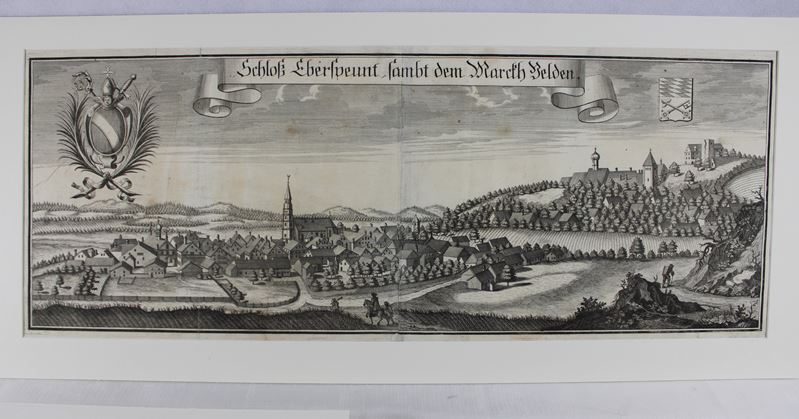 Schloß Eberspeunt sambt dem Marckh Velden.